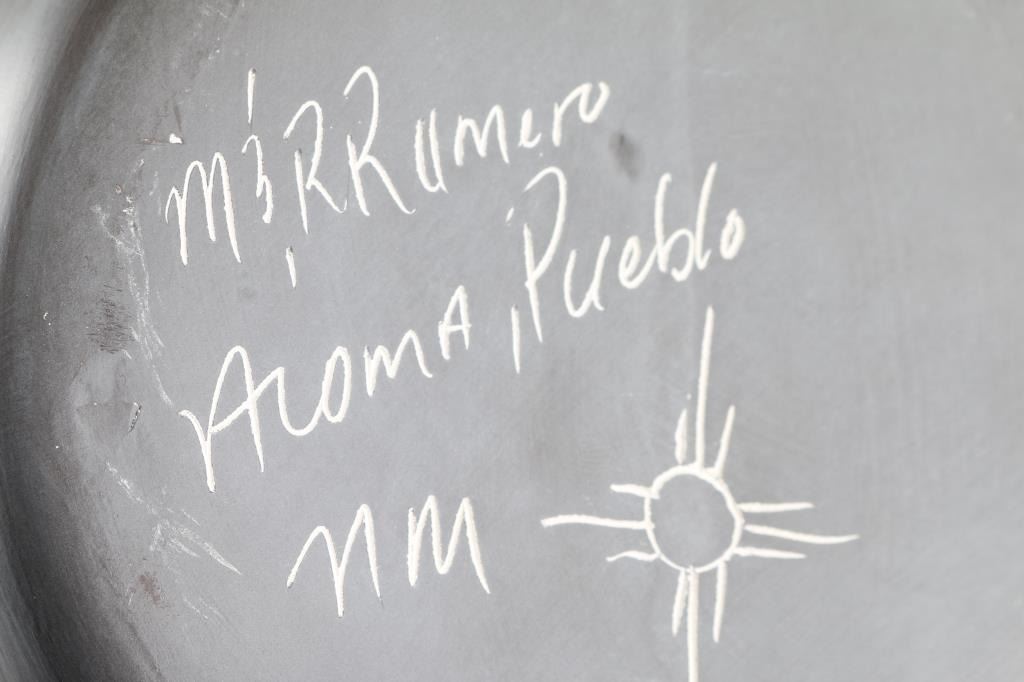 M & R Romero
Acoma, Pueblo
NM